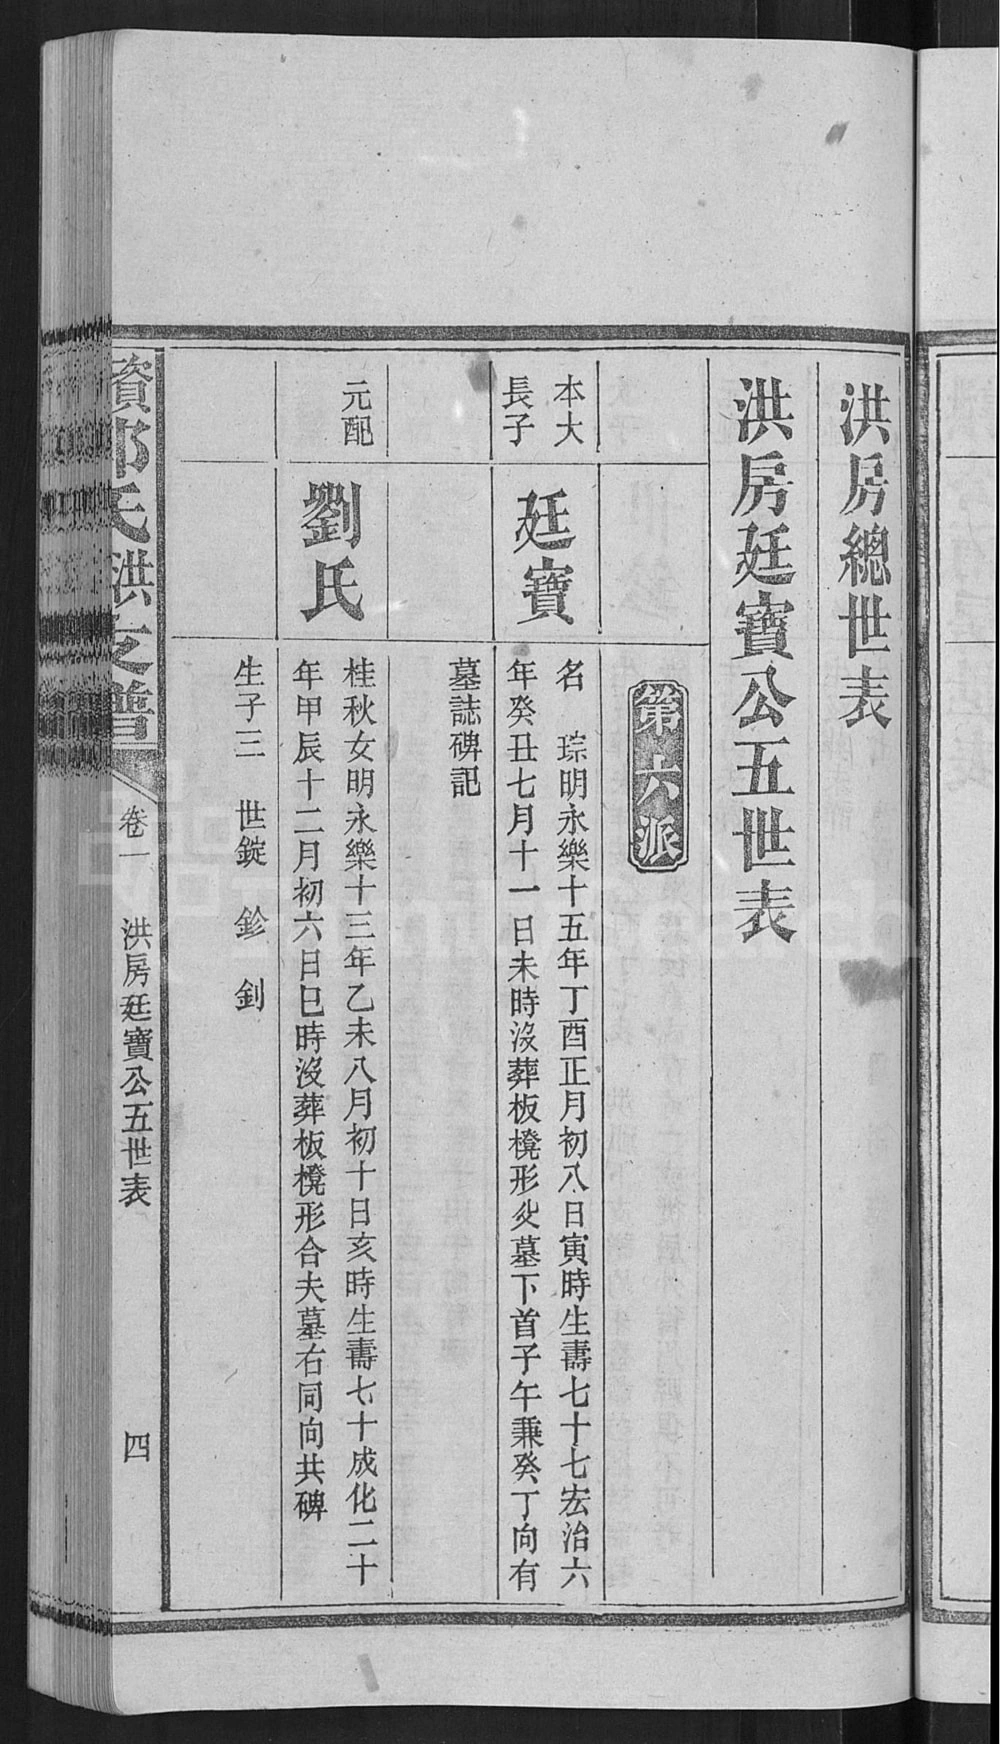 洪房總世表
洪房廷寶公五世表
第六派
本大
長子
廷寶
名　琮明永樂十五年丁酉正月初八日寅時生壽七十七宏治六
年癸丑七月十一日未時沒葬板櫈形父墓下首子午兼癸丁向有
墓誌碑記
元配
劉氏
桂秋女明永樂十三年乙未八月初十日亥時生壽七十成化二十
年甲辰十二月初六日巳時沒葬板櫈形合夫墓右同向共碑
生子三　世錠　鉁　釗
資邵氏洪支譜
卷一
洪房廷寶公五世表
四